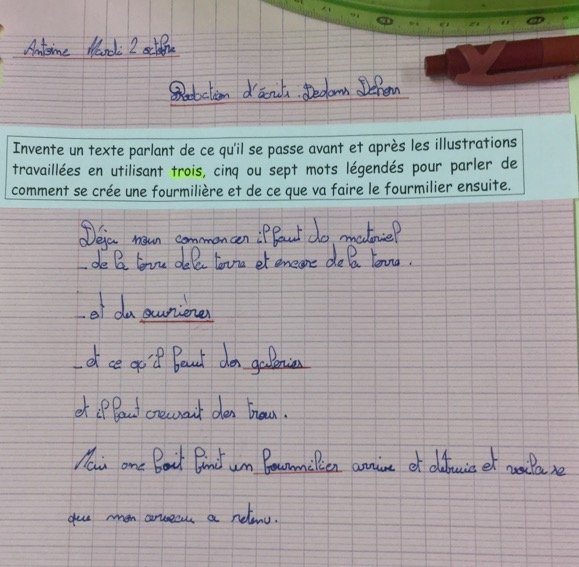 Antoine Mardi 2 octobre
Production d'écrits. Dedans Dehors
Invente un texte parlant de ce qu'il se passe avant et après les illustrations
travaillées en utilisant trois, cinq ou sept mots légendés pour parler de
comment se crée une fourmilière et de ce que va faire le fourmilier ensuite.
Déja nous commencer il faut du matériel
- de la terre de la terre et encore de la terre.
- et des ouvrières
- et ce qu'il faut des galeries
et il faut creusait des trous.
Mais one foit finit un fourmilier arrive et détruis et voila se
que mon cerveau a retenu.